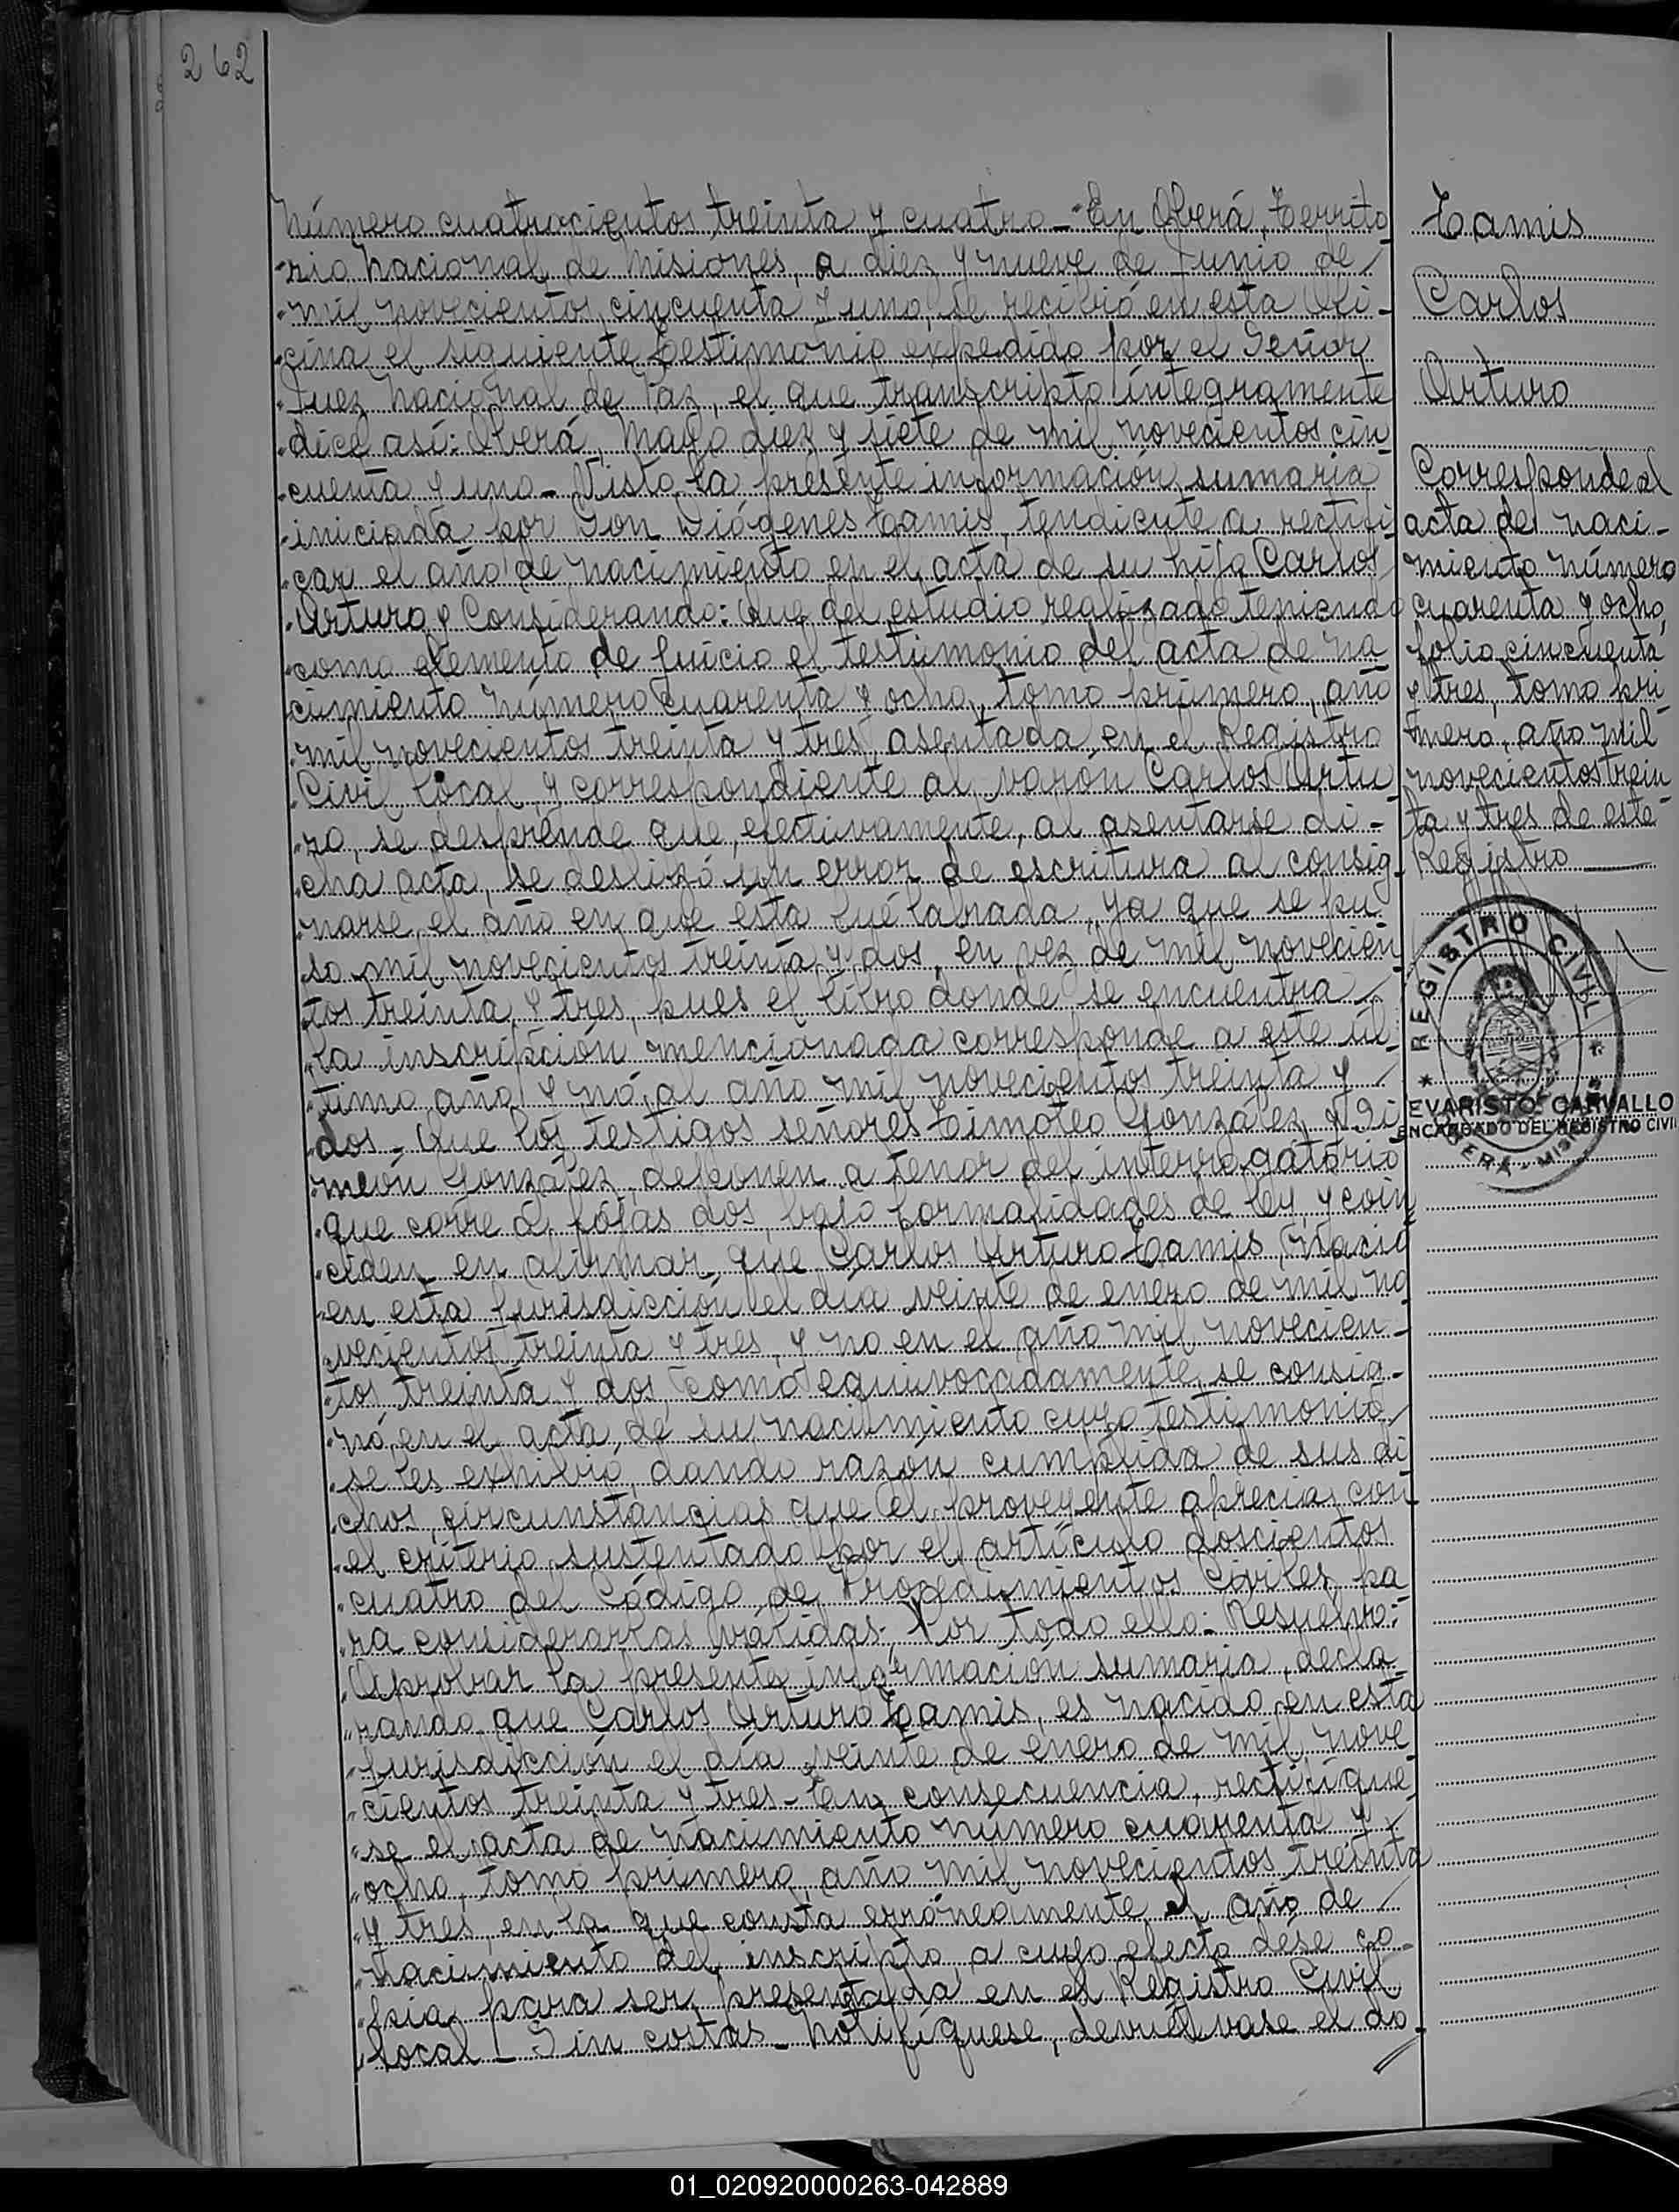 262
Número cuatrocientos treinta y cuatro - En Oberá, Territo
rio Nacional de Misiones, a diez y nueve de Junio de
mil novecientos cincuenta y uno, se recibió en esta Ofi-
cina el siguiente testimonio expedido por el Señor
Juez Nacional de Paz, el que transcripto íntegramente
dice así: Oberá, Mayo diez y siete de mil novecientos cin
cuenta y uno - Vista la presente información sumaria
iniciada por Don Diógenes Tamis, tendiente a rectifi
car el año de nacimiento en el acta de su hijo Carlos
Arturo y Considerando: Que del estudio realizado teniendo
como elemento de juicio el testimonio del acta de na
cimiento número cuarenta y ocho, tomo primero, año
mil novecientos treinta y tres, asentada en el Registro
Civil local y correspondiente al varón Carlos Artu
ro, se desprende que, efectivamente, al asentarse di-
cha acta, se deslizó un error de escritura al consig
narse el año en que ésta fué labrada, ya que se pu
so mil novecientos treinta y dos, en vez de mil novecien
tos treinta y tres, pues el libro donde se encuentra
la inscripción mencionada corresponde a este úl
timo año y nó al año mil novecientos treinta y
dos - Que los testigos señores Timoteo González y Si
meón González deponen a tenor del interrogatorio
que corre a fojas dos, bajo formalidades de ley y coin
ciden en afirmar que Carlos Arturo Tamis nació
en esta jurisdicción el día veinte de enero de mil no
vecientos treinta y tres, y no en el año mil novecien-
tos treinta y dos, como equivocadamente se consig-
nó en el acta de su nacimiento cuyo testimonio
se les exhibió, dando razón cumplida de sus di
chos, circunstancias que el proveyente aprecia con
el criterio sustentado por el artículo doscientos
cuatro del Código de Procedimientos Civiles pa
ra considerarlas válidas. Por todo ello: Resuelvo:
Aprobar la presente información sumaria, decla
rando que Carlos Arturo Tamis, es nacido en esta
jurisdicción el día veinte de enero de mil nove
cientos treinta y tres - En consecuencia, rectifíque
se el acta de nacimiento número cuarenta y
ocho, tomo primero, año mil novecientos treinta
y tres, en la que consta erróneamente el año de
nacimiento del inscripto a cuyo efecto dése co
pia para ser presentada en el Registro Civil
local - Sin costas - Notifíquese, devuélvase el do
Tamis
Carlos
Arturo
Corresponde al
acta de naci-
miento número
cuarenta y ocho,
folio cincuenta
y tres, tomo pri
mero, año mil
novecientos trein
ta y tres de este
Registro
REGISTRO CIVIL
EVARISTO CARVALLO
ENCARGADO DEL REGISTRO CIVIL
OBERÁ - MISIONES
01_020920000263-042889